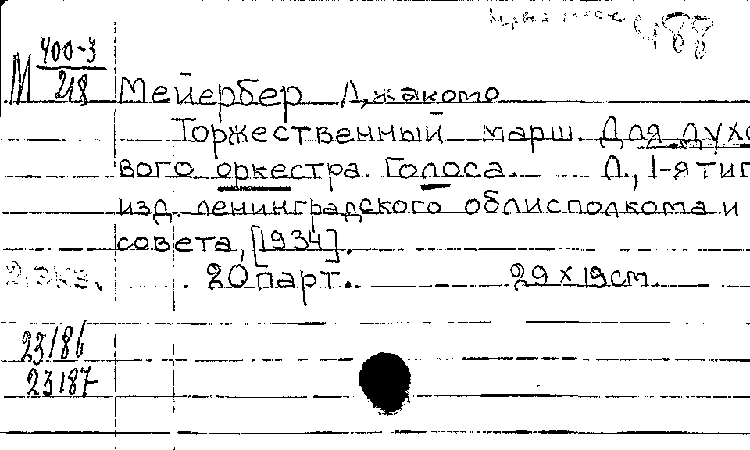 488
М 400-3
218
Мейербер Джакомо
Торжественный марш. Для духо
вого оркестра. Голоса. Л., 1-я тип.
изд. ленинградского облисполкома и
совета, [1934].
2 экз. 20 парт. 29 х 19 см.
23186
23187